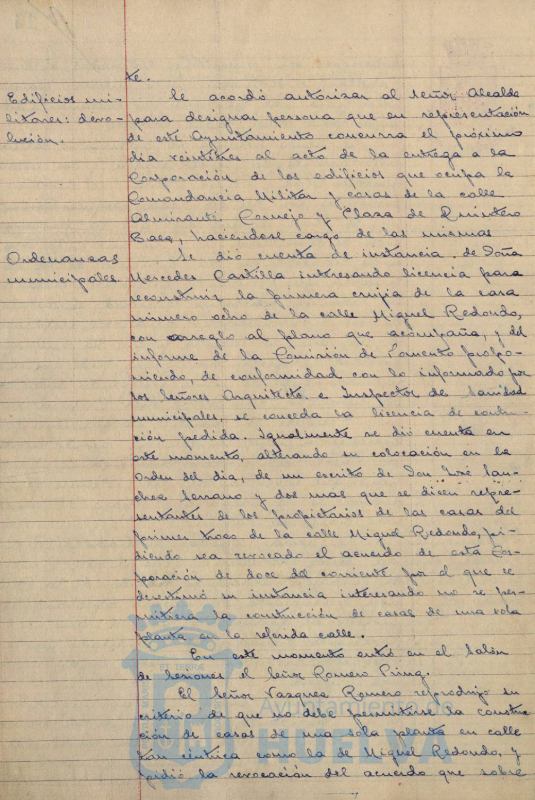 te.
Edificios mi-
litares: devo-
lución.
Se acordó autorizar al Señor Alcalde
para designar persona que en representación
de este Ayuntamiento concurra el próximo
dia veintitres al acto de la entrega a la
Corporación de los edificios que ocupa la
Comandancia Militar y casas de la calle
Almirante Cornejo y Plaza de Quintero
Baez, haciendose cargo de las mismas
Ordenanzas
municipales.
Se dió cuenta de instancia de Doña
Mercedes Castilla interesando licencia para
reconstruir la primera crujia de la casa
número ocho de la calle Miguel Redondo,
con arreglo al plano que acompaña, y del
informe de la Comisión de Fomento propo-
niendo, de conformidad con lo informado por
los Señores Arquitecto e Inspector de Sanidad
municipales, se conceda la licencia de constru-
ción pedida. Igualmente se dió cuenta en
este momento, alterando su colocación en la
Orden del dia, de un escrito de Don José San-
chez Serrano y dos mas que se dicen repre-
sentantes de los propietarios de las casas del
primer trozo de la calle Miguel Redondo, pi-
diendo sea revocado el acuerdo de esta Cor-
poración de doce del corriente por el que se
desestimó su instancia interesando no se per-
mitiera la construcción de casas de una sola
planta en la referida calle.
En este momento entró en el Salón
de Sesiones el Señor Romero Pring.
El Señor Vazquez Romero reprodujo su
criterio de que no debe permitirse la construc-
ción de casas de una sola planta en calle
tan céntrica como la de Miguel Redondo, y
pidió la revocación del acuerdo que sobre
Ayuntamiento de
HUELVA